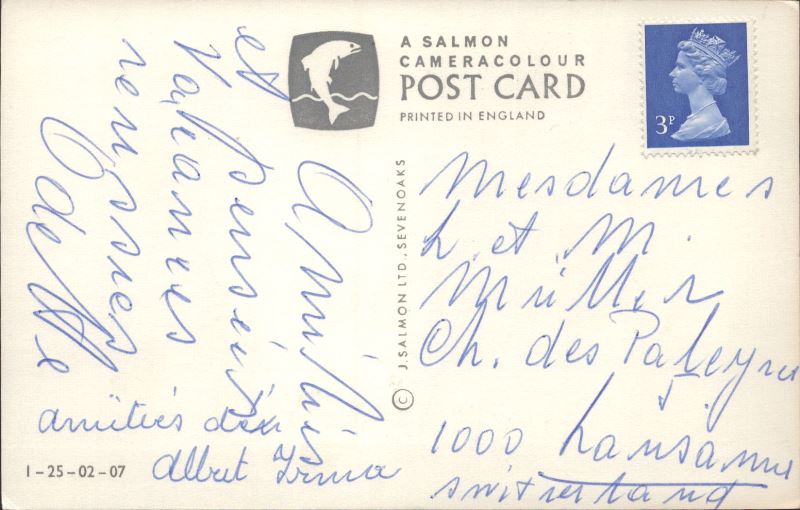 A SALMON
CAMERACOLOUR
POST CARD
PRINTED IN ENGLAND
3P
© J. SALMON LTD., SEVENOAKS
Amitiés
et pensées
Vacances
réussies
Odette
amitiés d'
Albert Irma
1-25-02-07
Mesdames
h. et M.
Müller
Ch. des Paleyres
5.
1000 Lausanne
Switzerland